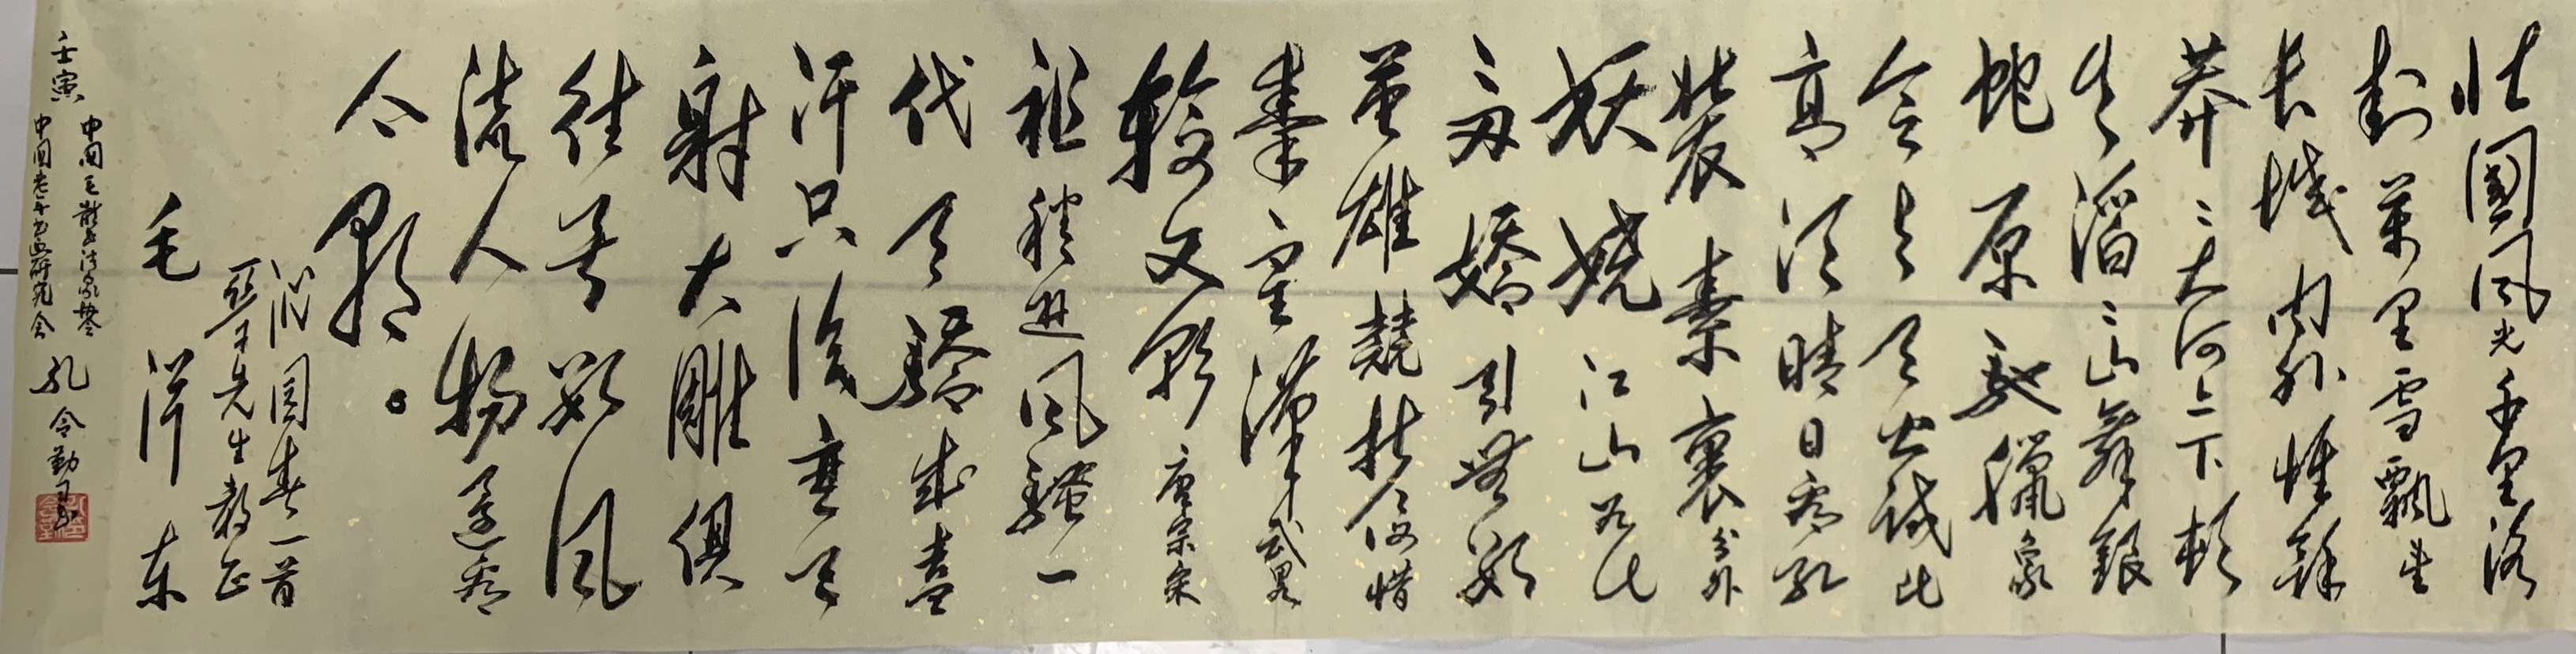 北國风光千里冰
封萬里雪飄望
长城内外惟馀
莽ミ大河上下顿
失滔ミ山舞银
蛇原驰臘象
欲与天公试比
高须晴日看红
装素裹分外
妖娆江山如此
ミ娇引無数
英雄競折腰惜
秦皇漢武略
输文彩唐宗宋
祖稍逊风骚一
代天骄成吉
汗只识弯弓
射大雕俱
往矣数风
流人物还看
今朝。
沁园春一首
先生教正
毛泽东
壬寅
中国毛书法家
中国老年书画研究会 孔令勤书